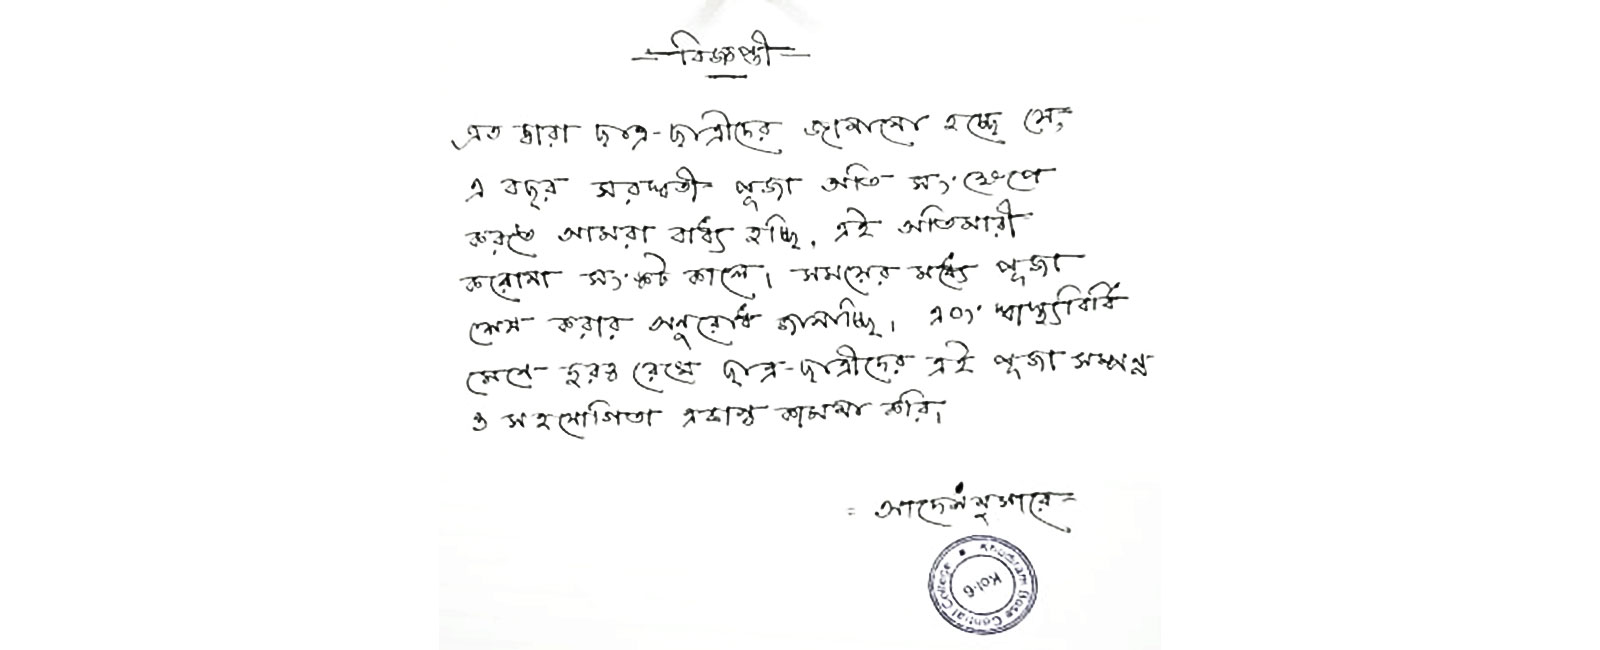 বিজ্ঞপ্তী
এত দ্বারা ছাত্র-ছাত্রীদের জানানো হচ্ছে যে,
এ বছর সরস্বতী পূজা অতি সংক্ষেপে
করতে আমরা বাধ্য হচ্ছি, এই অতিমারী
করোনা সংকট কালে। সময়ের মধ্যে পূজা
শেষ করার অনুরোধ জানাচ্ছি। এবং স্বাস্থ্যবিধি
মেনে দুরত্ব রেখে ছাত্র-ছাত্রীদের এই পূজা সম্পন্ন
ও সহযোগিতা একান্ত কামনা করি।
= আদেশানুসারে =
Khudiram Bose Central College
Kol-6